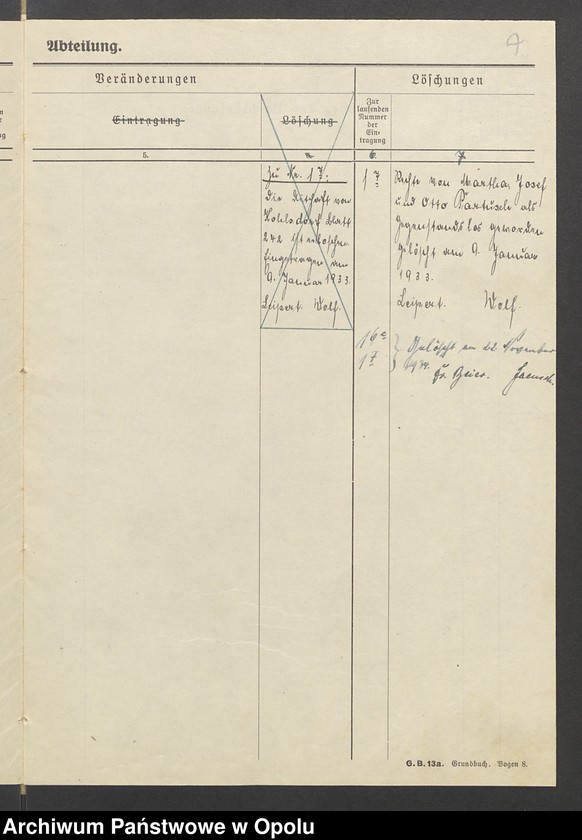 Abteilung.
Veränderungen
Löschungen
Eintragung
Löschung
Zur
laufenden
Nummer
der
Ein-
tragung
5.
6.
7
Zu Nr. 1
Die Mithaft von
Blatt
242 ist erloschen.
Eingetragen am
9. Januar 1933.
Leipert. Wolf.
1
Rechte von Martha, Josef
und Otto als
gegenstandslos geworden
gelöscht am 9. Januar
1933.
Leipert. Wolf.
1
1
Gelöscht am 22 November
G.B.13a. Grundbuch. Bogen 8.
Archiwum Państwowe w Opolu